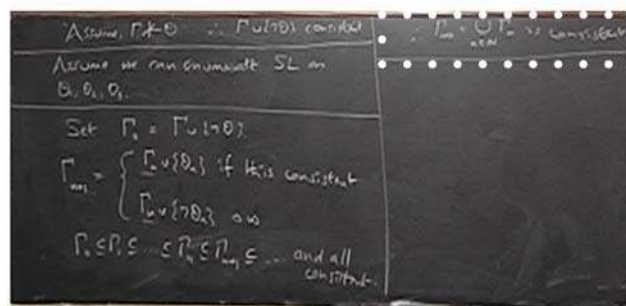 Assume Γ⊬θ ∴ Γ∪{¬θ} consistent
Assume we can enumerate SL as
θ₁, θ₂, θ₃, ...
Set Γ₁ = Γ∪{¬θ}
Γₙ₊₁ = { Γₙ∪{θₙ} if this consistent
Γₙ∪{¬θₙ} o/w
Γ₀⊆Γ₁⊆ ... ⊆Γₙ⊆Γₙ₊₁⊆ ... and all
consistent.
∴ Γ∞ = ⋃ Γₙ is consistent
n∈ℕ